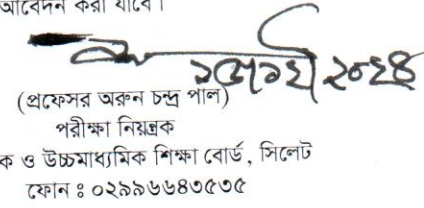 আবেদন করা যাবে।
(প্রফেসর অরুন চন্দ্র পাল)
পরীক্ষা নিয়ন্ত্রক
ক ও উচ্চমাধ্যমিক শিক্ষা বোর্ড, সিলেট
ফোন ঃ ০২৯৯৬৬৪৩৫৩৫